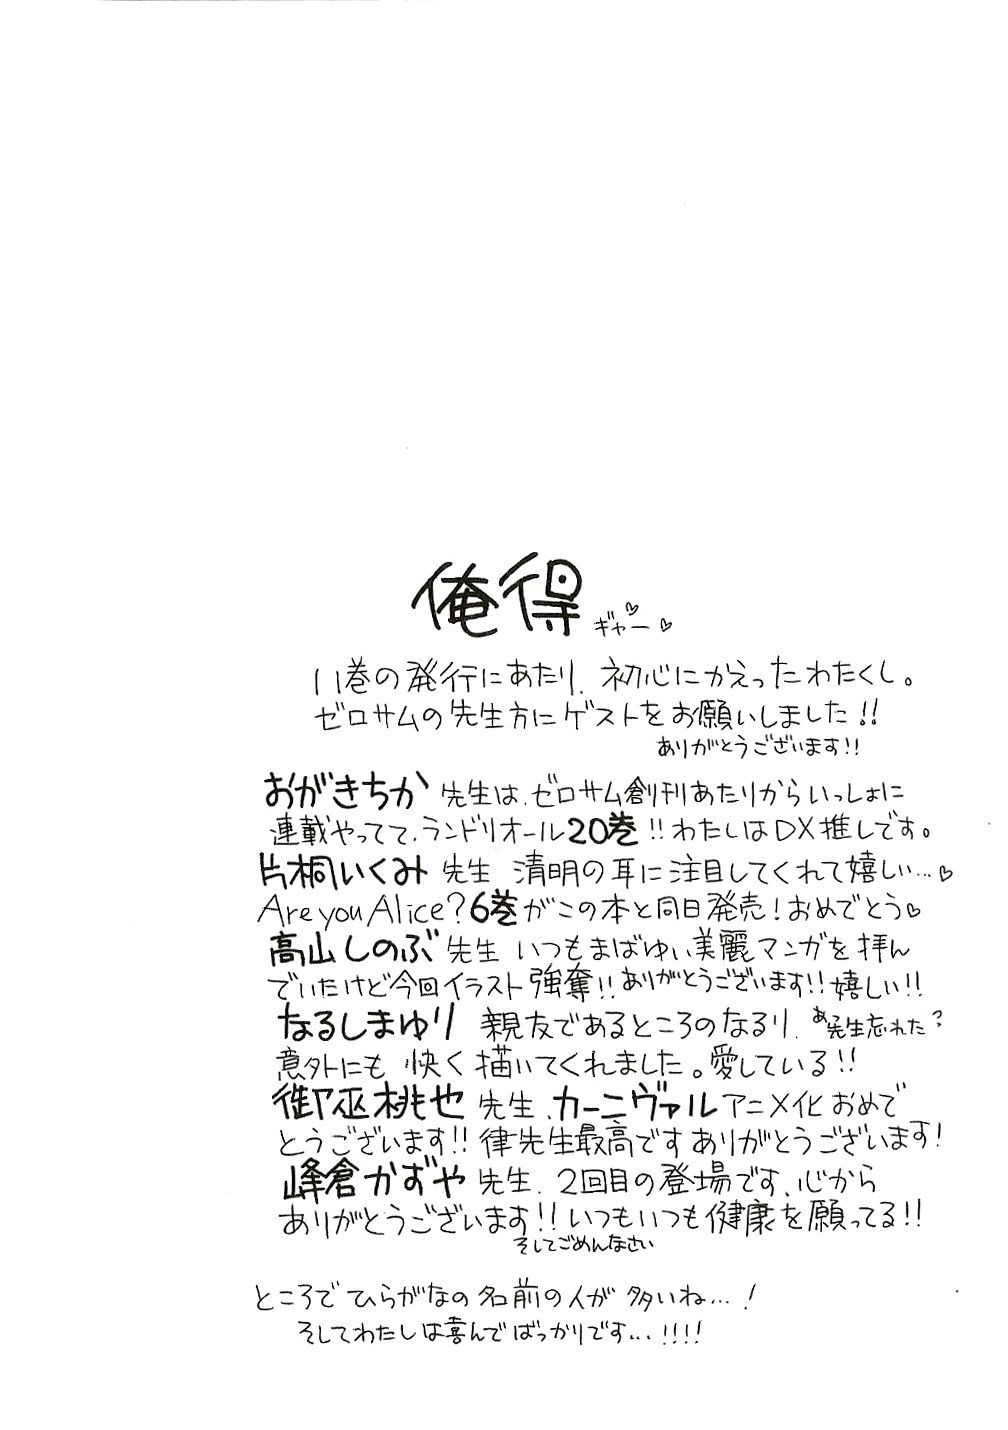 俺得 ギャー♡♡
11巻の発行にあたり、初心にかえったわたくし。
ゼロサムの先生方にゲストをお願いしました!!
ありがとうございます!!
おがきちか 先生は、ゼロサム創刊あたりからいっしょに
連載やってて、ランドリオール20巻!!わたしはDX推しです。
片桐いくみ 先生 清明の耳に注目してくれて嬉しい…♡
Are you Alice?6巻がこの本と同日発売!おめでとう♡
高山しのぶ 先生 いつもまばゆい美麗マンガを拝ん
でいたけど今回イラスト強奪!!ありがとうございます!!嬉しい!!
なるしまゆり 親友であるところのなるり、あ先生忘れた?
意外にも 快く描いてくれました。愛している!!
御巫桃也 先生、カーニヴァルアニメ化おめで
とうございます!!律先生最高ですありがとうございます!
峰倉かずや 先生、2回目の登場です、心から
ありがとうございます!!いつもいつも健康を願ってる!!
そしてごめんなさい
ところでひらがなの名前の人が多いね…!
そしてわたしは喜んでばっかりです…!!!!